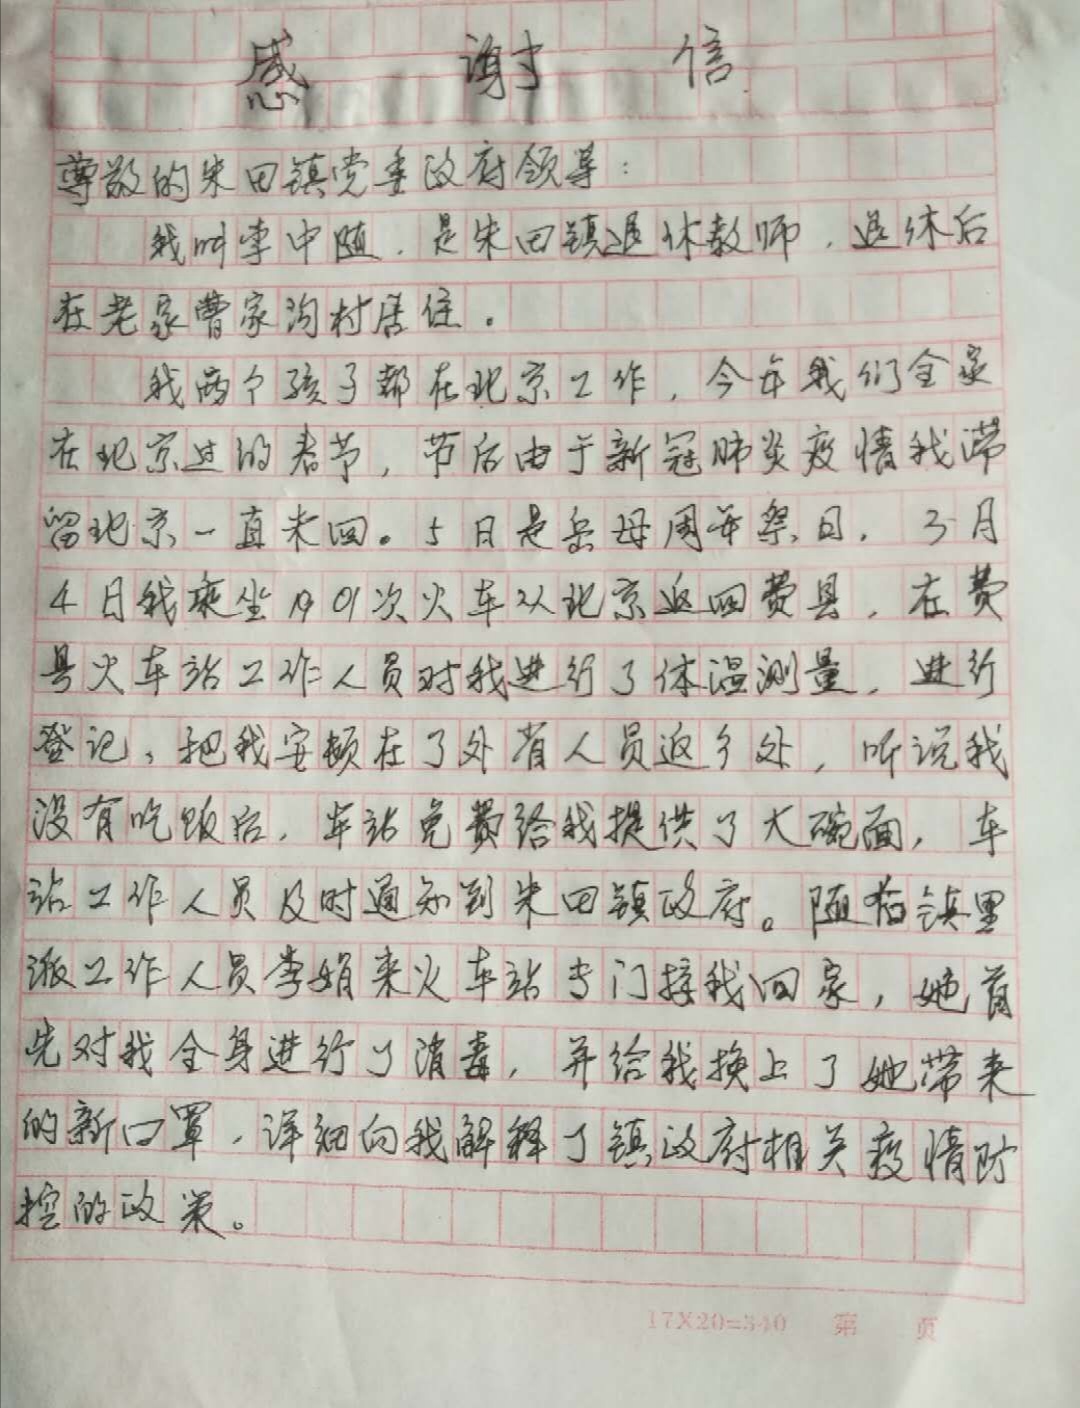 感谢信
尊敬的朱田镇党委政府领导：
我叫李中随，是朱田镇退休教师，退休后
在老家曹家沟村居住。
我两个孩子都在北京工作，今年我们全家
在北京过的春节，节后由于新冠肺炎疫情我滞
留北京一直未回。5日是岳母周年祭日，3月
4日我乘坐 01次火车从北京返回费县，在费
县火车站工作人员对我进行了体温测量，进行
登记，把我安顿在了外省人员返乡处，听说我
没有吃饭后，车站免费给我提供了大碗面，车
站工作人员及时通知到朱田镇政府。随后镇里
派工作人员李娟来火车站专门接我回家，她首
先对我全身进行了消毒，并给我换上了她带来
的新口罩，详细向我解释了镇政府相关疫情防
控的政策。
17X20=340 第 页